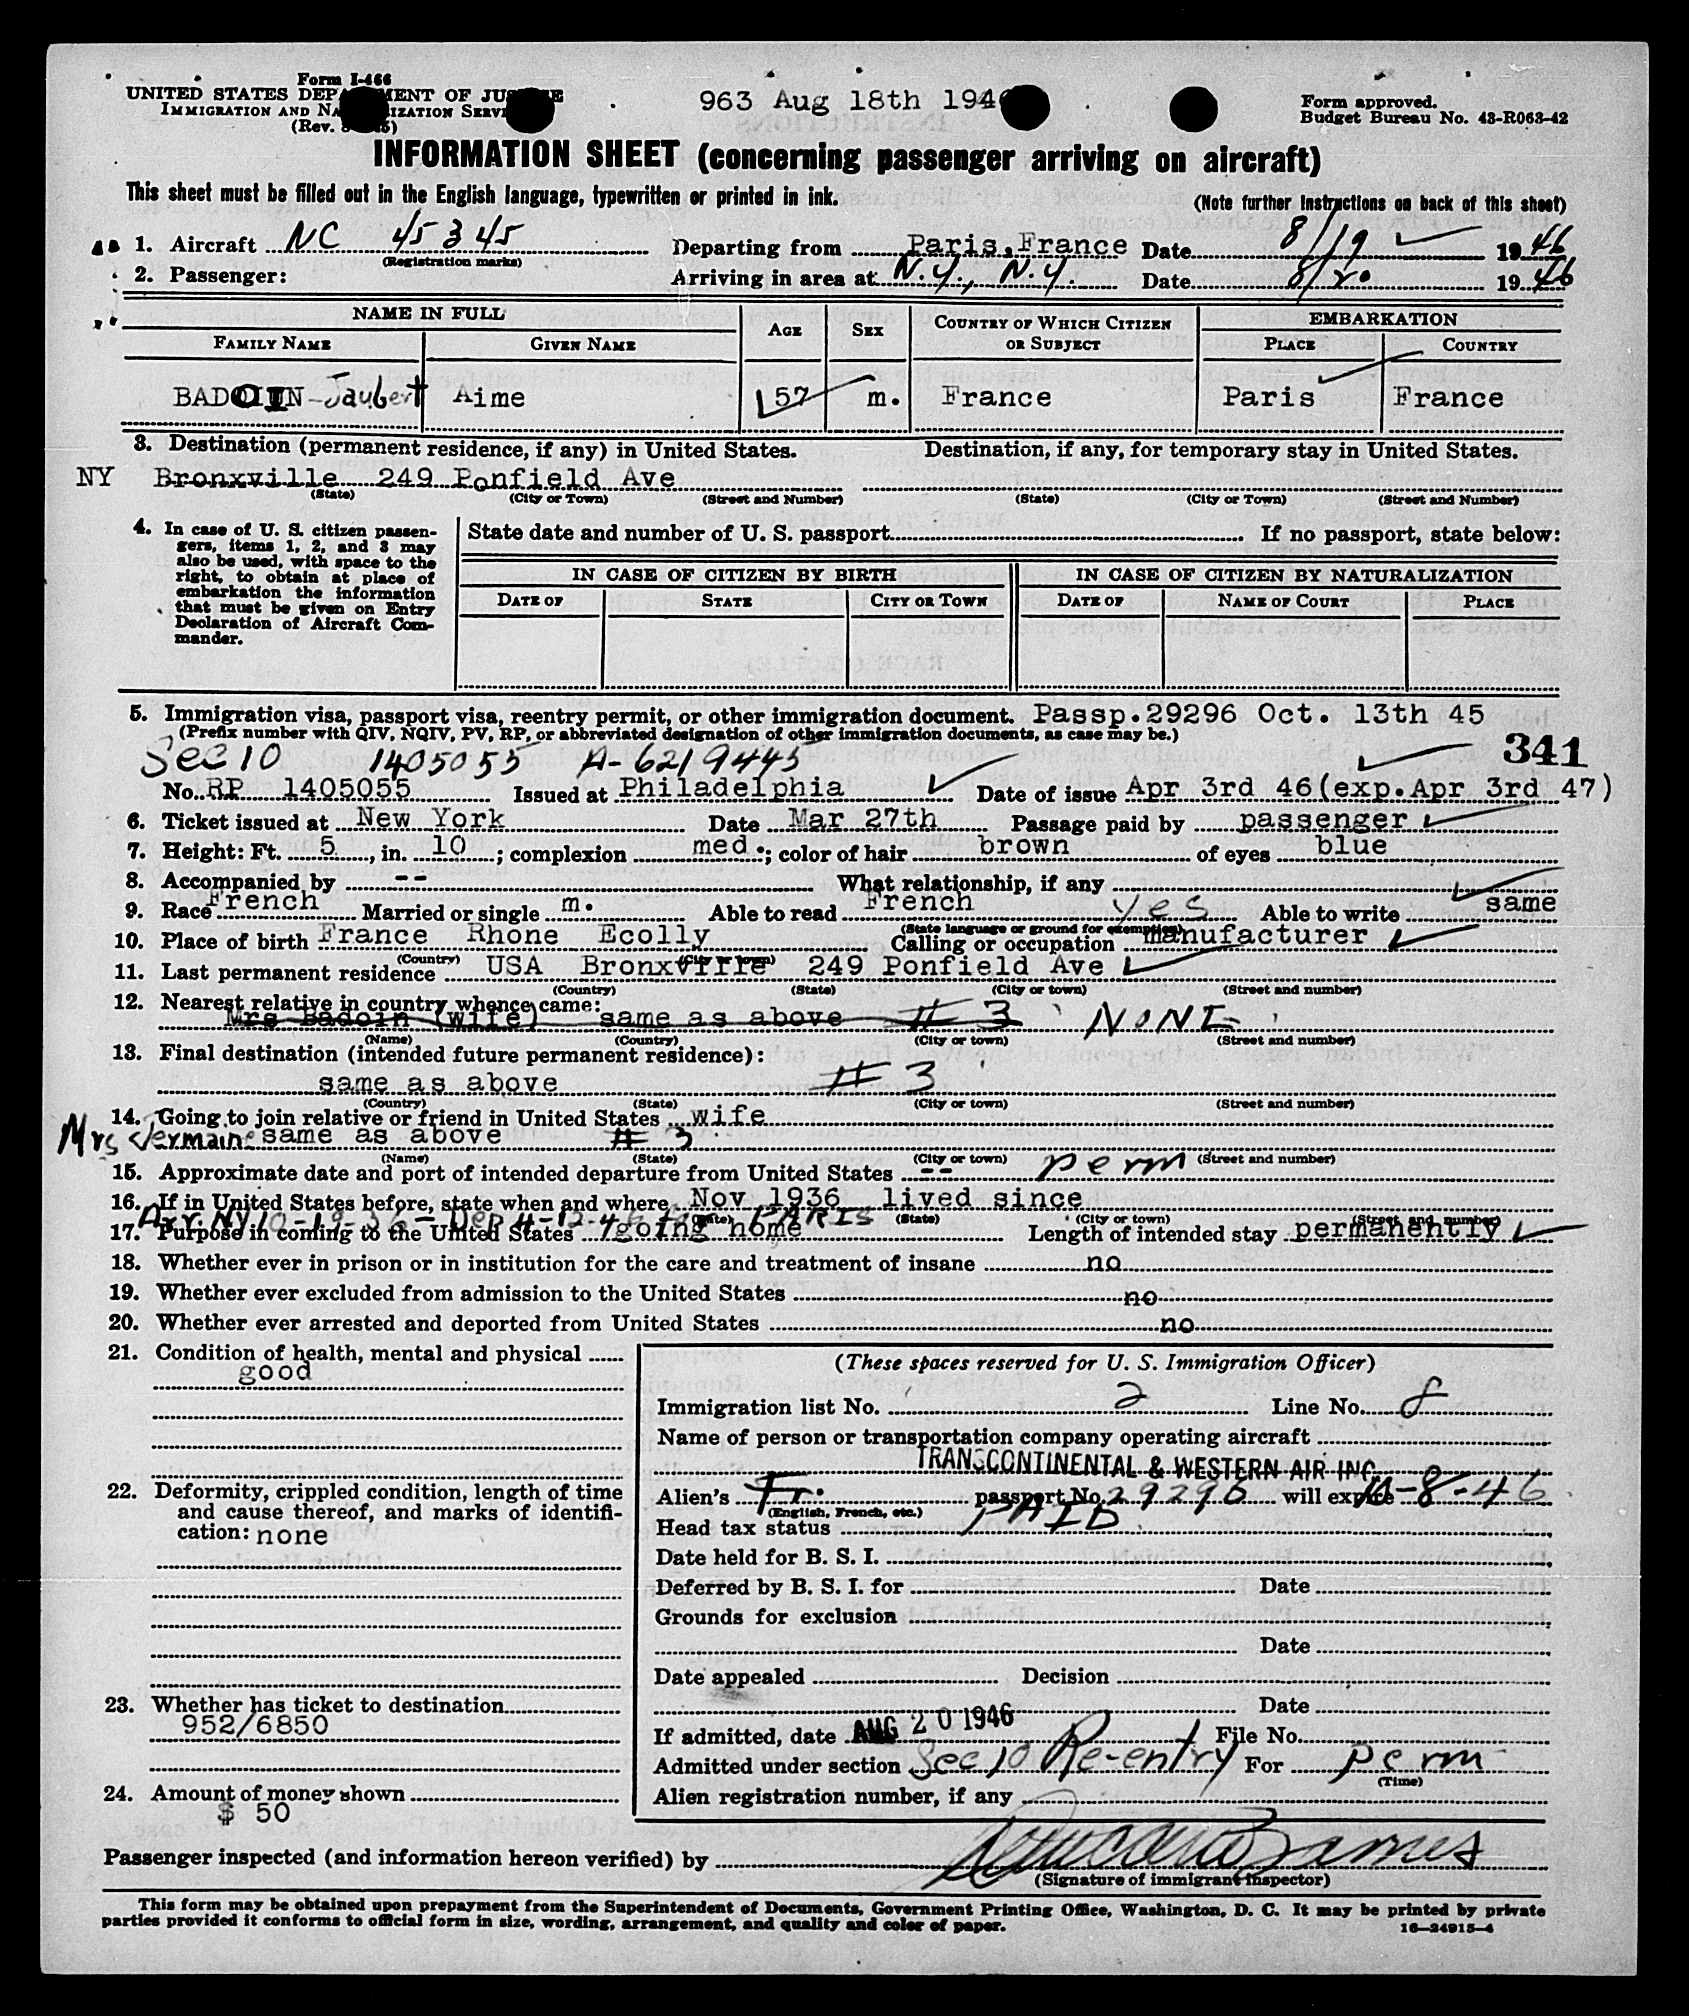 Form I-466
UNITED STATES DEP MENT OF JU E
IMMIGRATION AND NA IZATION SERVI
(Rev. 5)
963 Aug 18th 194
Form approved.
Budget Bureau No. 43-R063-42
INFORMATION SHEET (concerning passenger arriving on aircraft)
This sheet must be filled out in the English language, typewritten or printed in ink.
(Note further instructions on back of this sheet)
1. Aircraft NC 45345 Departing from Paris, France Date 8/19 1946
(Registration marks)
2. Passenger: Arriving in area at N.Y., N.Y. Date 8/20 1946
NAME IN FULL AGE SEX COUNTRY OF WHICH CITIZEN OR SUBJECT EMBARKATION
FAMILY NAME GIVEN NAME PLACE COUNTRY
BADOIN-Jaubert Aime 57 m. France Paris France
3. Destination (permanent residence, if any) in United States. Destination, if any, for temporary stay in United States.
NY Bronxville 249 Ponfield Ave
(State) (City or Town) (Street and Number) (State) (City or Town) (Street and Number)
4. In case of U. S. citizen passen-
gers, items 1, 2, and 3 may
also be used, with space to the
right, to obtain at place of
embarkation the information
that must be given on Entry
Declaration of Aircraft Com-
mander.
State date and number of U. S. passport If no passport, state below:
IN CASE OF CITIZEN BY BIRTH IN CASE OF CITIZEN BY NATURALIZATION
DATE OF STATE CITY OR TOWN DATE OF NAME OF COURT PLACE
5. Immigration visa, passport visa, reentry permit, or other immigration document. Passp.29296 Oct. 13th 45
(Prefix number with QIV, NQIV, PV, RP, or abbreviated designation of other immigration documents, as case may be.)
Sec 10 1405055 A-6219445 341
No. RP 1405055 Issued at Philadelphia Date of issue Apr 3rd 46(exp.Apr 3rd 47)
6. Ticket issued at New York Date Mar 27th Passage paid by passenger
7. Height: Ft. 5, in. 10; complexion med.; color of hair brown of eyes blue
8. Accompanied by -- What relationship, if any
9. Race French Married or single m. Able to read French yes Able to write same
(State language or ground for exemption)
10. Place of birth France Rhone Ecolly Calling or occupation manufacturer
(Country) (City or town)
11. Last permanent residence USA Bronxville 249 Ponfield Ave
(Country) (State) (City or town) (Street and number)
12. Nearest relative in country whence came:
Mrs Badoin (wife) same as above # 3 NONE
(Name) (Country) (City or town) (Street and number)
13. Final destination (intended future permanent residence):
same as above # 3
(Country) (State) (City or town) (Street and number)
14. Going to join relative or friend in United States wife
Mrs Jermaine same as above # 3
(Name) (State) (City or town) (Street and number)
15. Approximate date and port of intended departure from United States -- perm
16. If in United States before, state when and where Nov 1936 lived since
Arr. NY 10-19-36 - Dep 4-12-46 for PARIS
(Date) (State) (City or town) (Street and number)
17. Purpose in coming to the United States going home Length of intended stay permanently
18. Whether ever in prison or in institution for the care and treatment of insane no
19. Whether ever excluded from admission to the United States no
20. Whether ever arrested and deported from United States no
21. Condition of health, mental and physical
good
22. Deformity, crippled condition, length of time
and cause thereof, and marks of identifi-
cation: none
23. Whether has ticket to destination
952/6850
24. Amount of money shown
$ 50
(These spaces reserved for U. S. Immigration Officer)
Immigration list No. 2 Line No. 8
Name of person or transportation company operating aircraft
TRANSCONTINENTAL & WESTERN AIR INC
Alien's Fr. passport No. 29296 will expire 10-8-46
(English, French, etc.)
Head tax status PAID
Date held for B. S. I.
Deferred by B. S. I. for Date
Grounds for exclusion
Date
Date appealed Decision
Date
If admitted, date AUG 20 1946 File No.
Admitted under section Sec 10 Re-entry For perm
(Time)
Alien registration number, if any
Passenger inspected (and information hereon verified) by
(Signature of immigrant inspector)
This form may be obtained upon prepayment from the Superintendent of Documents, Government Printing Office, Washington, D. C. It may be printed by private
parties provided it conforms to official form in size, wording, arrangement, and quality and color of paper. 16-24915-4